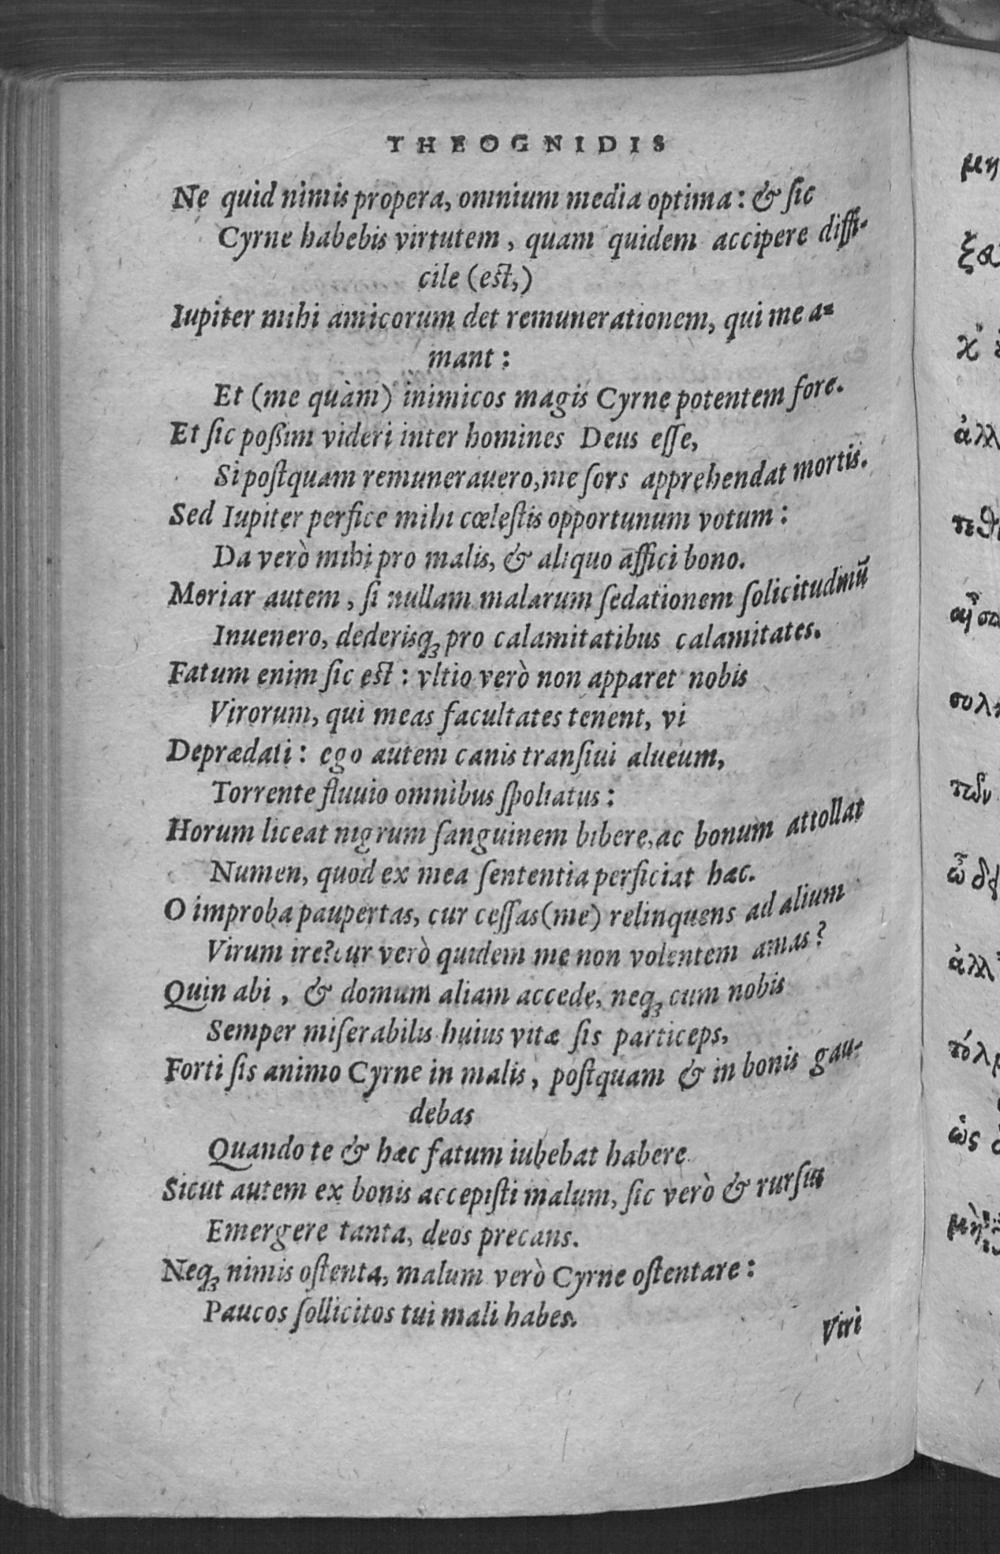 THEOGNIDIS
Ne quid nimis propera, omnium media optima: & sic
Cyrne habebis virtutem, quam quidem accipere diffi-
cile (est,)
Iupiter mihi amicorum det remunerationem, qui me a-
mant:
Et (me quàm) inimicos magis Cyrne potentem fore.
Et sic poßim videri inter homines Deus esse,
Si postquam remunerauero, me sors apprehendat mortis.
Sed Iupiter perfice mihi cœlestis opportunum votum:
Da verò mihi pro malis, & aliquo affici bono.
Moriar autem, si nullam malarum sedationem solicitudinū
Inuenero, dederisq; pro calamitatibus calamitates.
Fatum enim sic est: vltio verò non apparet nobis
Virorum, qui meas facultates tenent, vi
Deprædati: ego autem canis transiui alueum,
Torrente fluuio omnibus spoliatus:
Horum liceat nigrum sanguinem bibere, ac bonum attollat
Numen, quod ex mea sententia perficiat hæc.
O improba paupertas, cur cessas (me) relinquens ad alium
Virum ire? cur verò quidem me non volentem amas?
Quin abi, & domum aliam accede, neq; cum nobis
Semper miserabilis huius vitæ sis particeps,
Forti sis animo Cyrne in malis, postquam & in bonis gau-
debas
Quando te & hæc fatum iubebat habere
Sicut autem ex bonis accepisti malum, sic verò & rursus
Emergere tanta, deos precans.
Neq; nimis ostenta, malum verò Cyrne ostentare:
Paucos sollicitos tui mali habes.
Viri
μη
ἀλλ